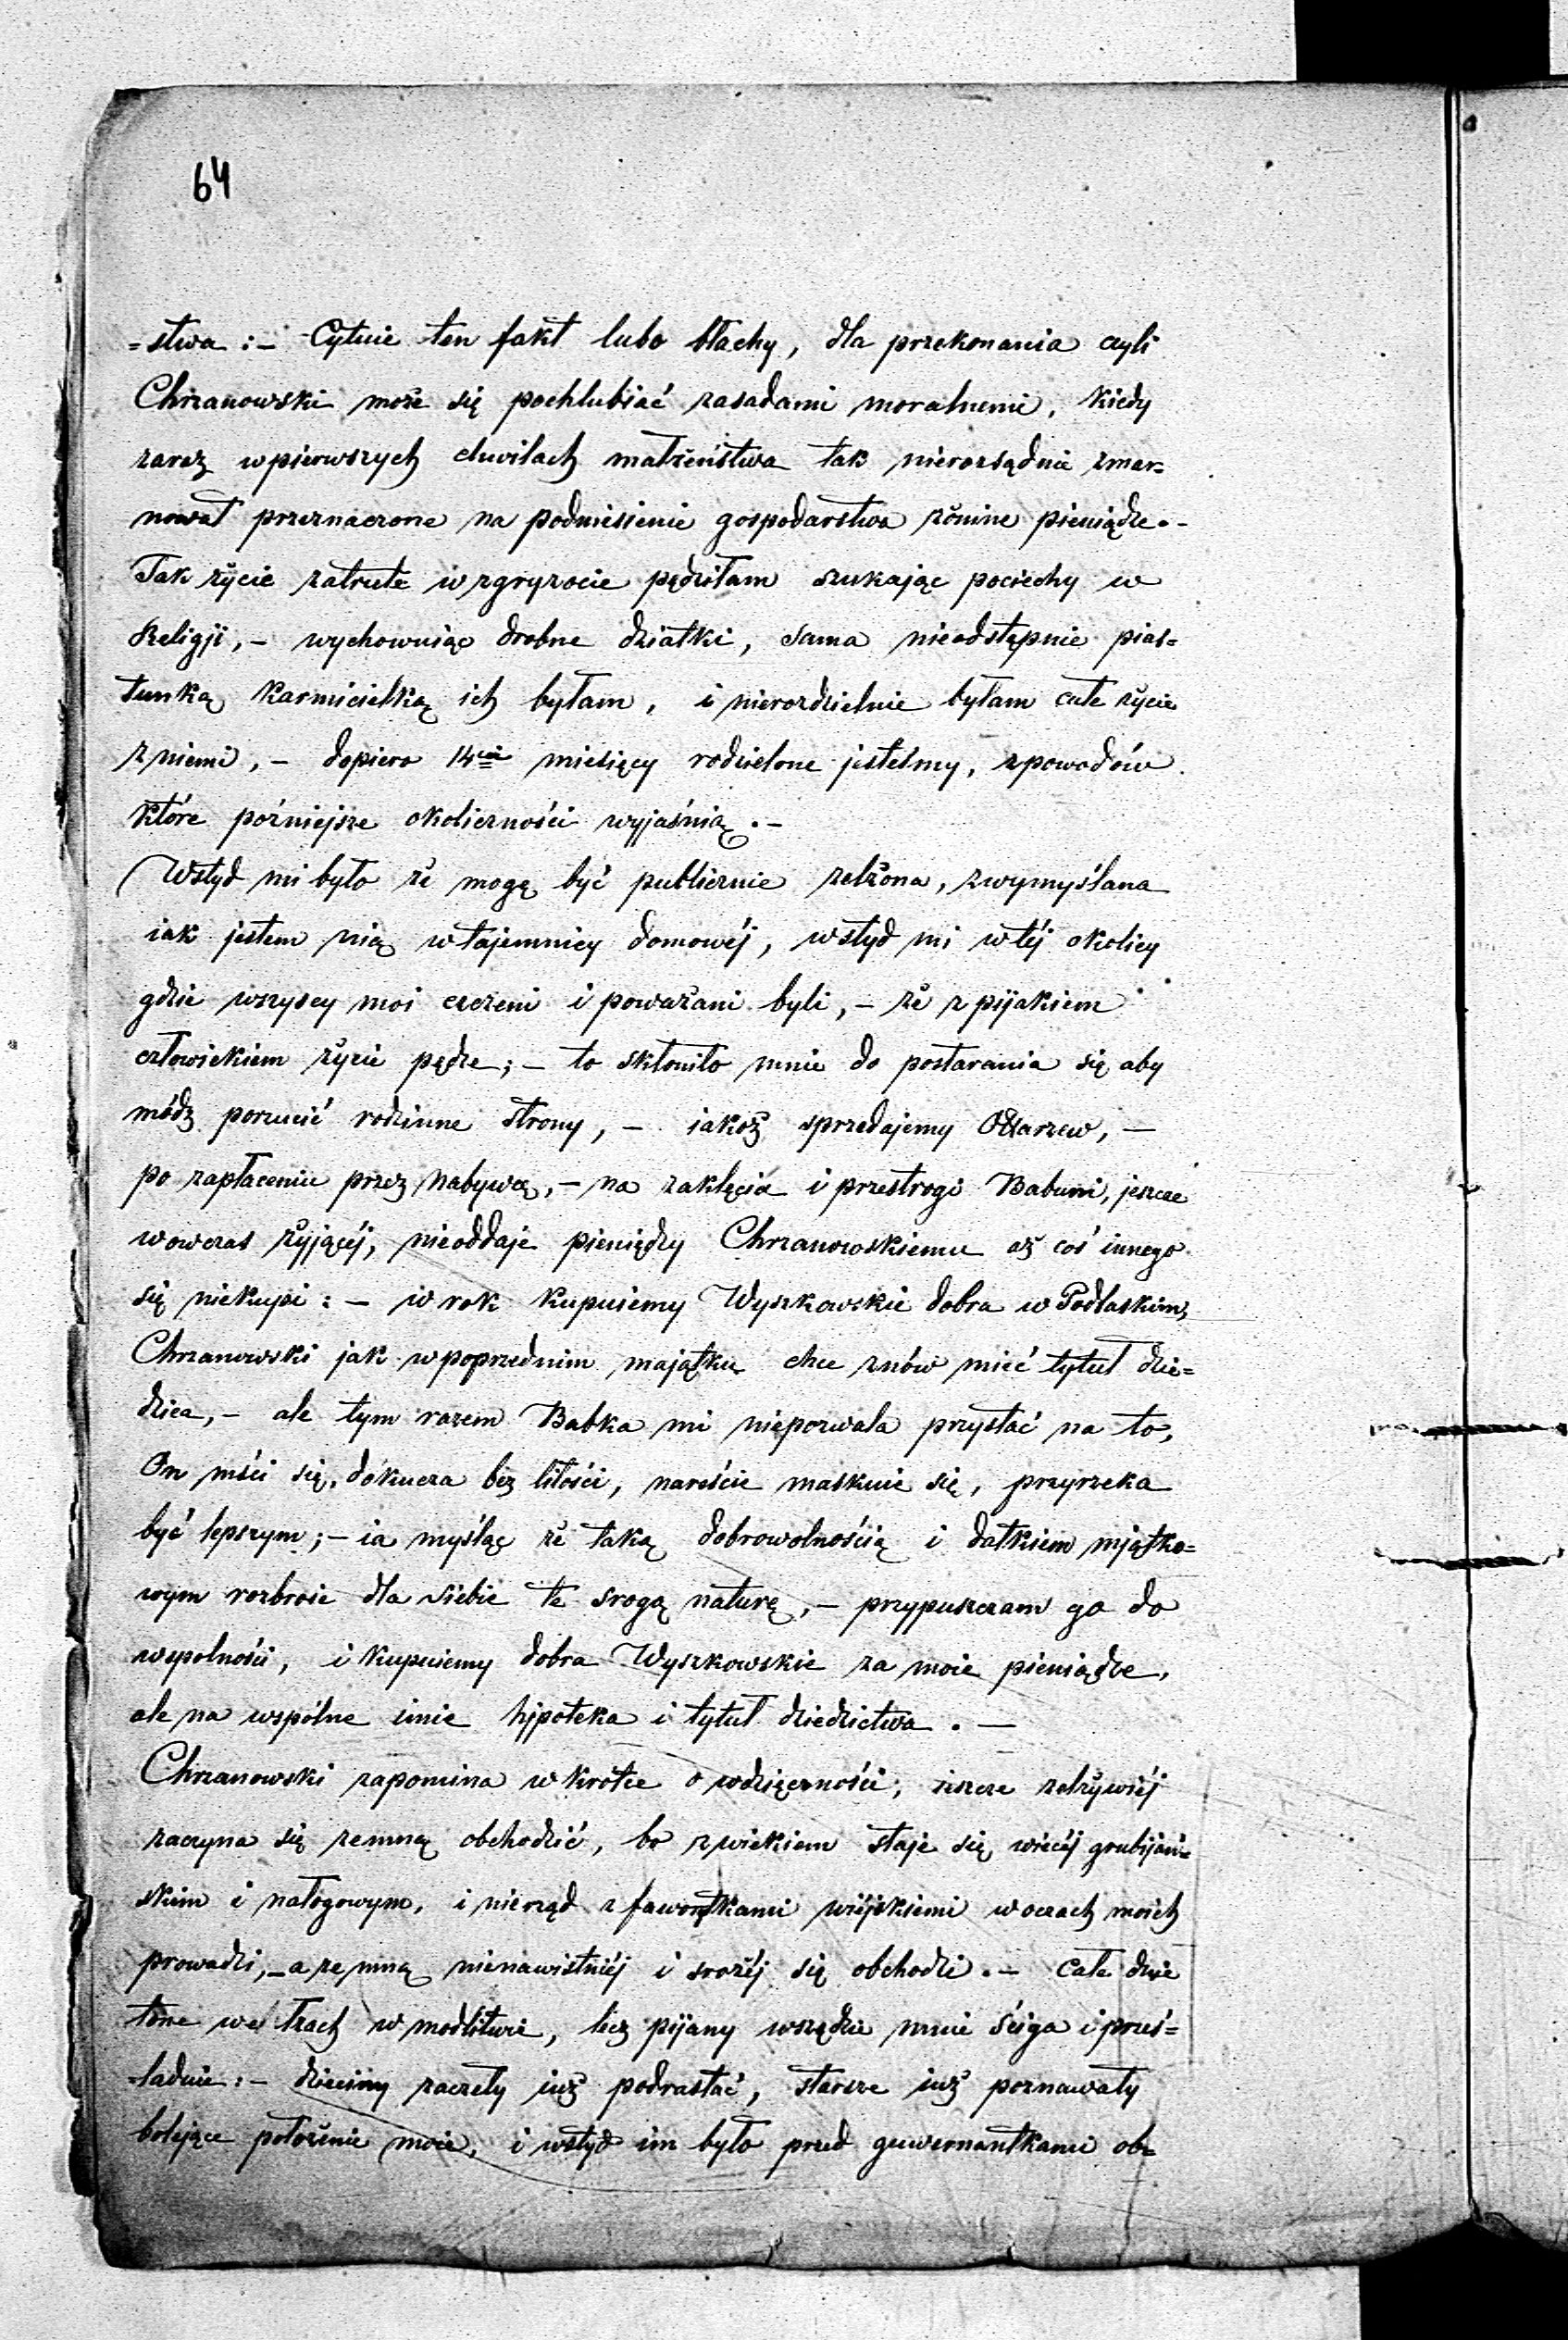 64
=stwa :- Cytuie ten fakt lubo błachy, dla przekonania czyli
Chrzanowski może się pochlubiać zasadami moralnemi, kiedy
zaraz wpierwszych chwilach małżeństwa tak nierozsądnie zmar=
nował przeznaczone na podniesienie gospodarstwa żonine pieniądze.-
Tak życie zatrute i w zgryzocie pędziłam szukając pociechy w
Religji,- wychowuiąc drobne dziatki, sama nieodstępnie pias=
tunką karmicielką ich byłam, i nierozdzielnie byłam całe życie
z niemi,- dopiero 14cie miesięcy rodzielone jesteśmy, z powodów
które poźniejsze okoliczności wyjaśnią.-
Wstyd mi było że mogę być publicznie zelżona, zwymyślana
iak jestem nią w tajemnicy domowéj, wstyd mi w téj okolicy
gdzie wszyscy moi czczeni i poważani byli,- że z pijakiem
człowiekiem życie pędze;- to skłoniło mnie do postarania się aby
módz porzucić rodzinne strony,- iakoż sprzedajemy Ołtarzew,-
po zapłaceniu przez nabywcę,- na zaklęcia i przestrogi Babuni, jeszcze
wowczas żyjącéj, nieoddaje pieniędzy Chrzanowskiemu aż coś innego
się niekupi :- w rok kupuiemy Wyszkowskie dobra w Podlaskim,
Chrzanowski jak w poprzednim majątku chce znów mieć tytuł dzie=
dzica,- ale tym razem Babka mi niepozwala przystać na to,
On mści się, dokucza bez litości, nareście maskuie się, przyrzeka
być lepszym;- ia myśląc że taką dobrowolnością i datkiem mjątko=
wym rozbroie dla siebie te srogą naturę,- przypuszczam go do
wspolności, i kupuiemy dobra Wyszkowskie za moie pieniądze,
ale na wspólne imie hypoteka i tytuł dziedzictwa.-
Chrzanowski zapomina w krótce o wdzięczności, ieszcze zelżywiéj
zaczyna się zemną obchodzić, bo z wiekiem staje się wiecéj grubijań=
skim i nałogowym, i nierząd z faworytkami wiéjskiemi w oczach moich
prowadzi,- a ze mną nienawistniéj i srożéj się obchodzi.- Całe dnie
tone we łzach w modlitwie, lecz pijany wszędzie mnie ściga i prześ=
=laduie :- dzieciny zaczeły iuż podrastać, starsze iuż poznawały
bolejące położenie moie, i wstyd im było przed guwernantkami ob=